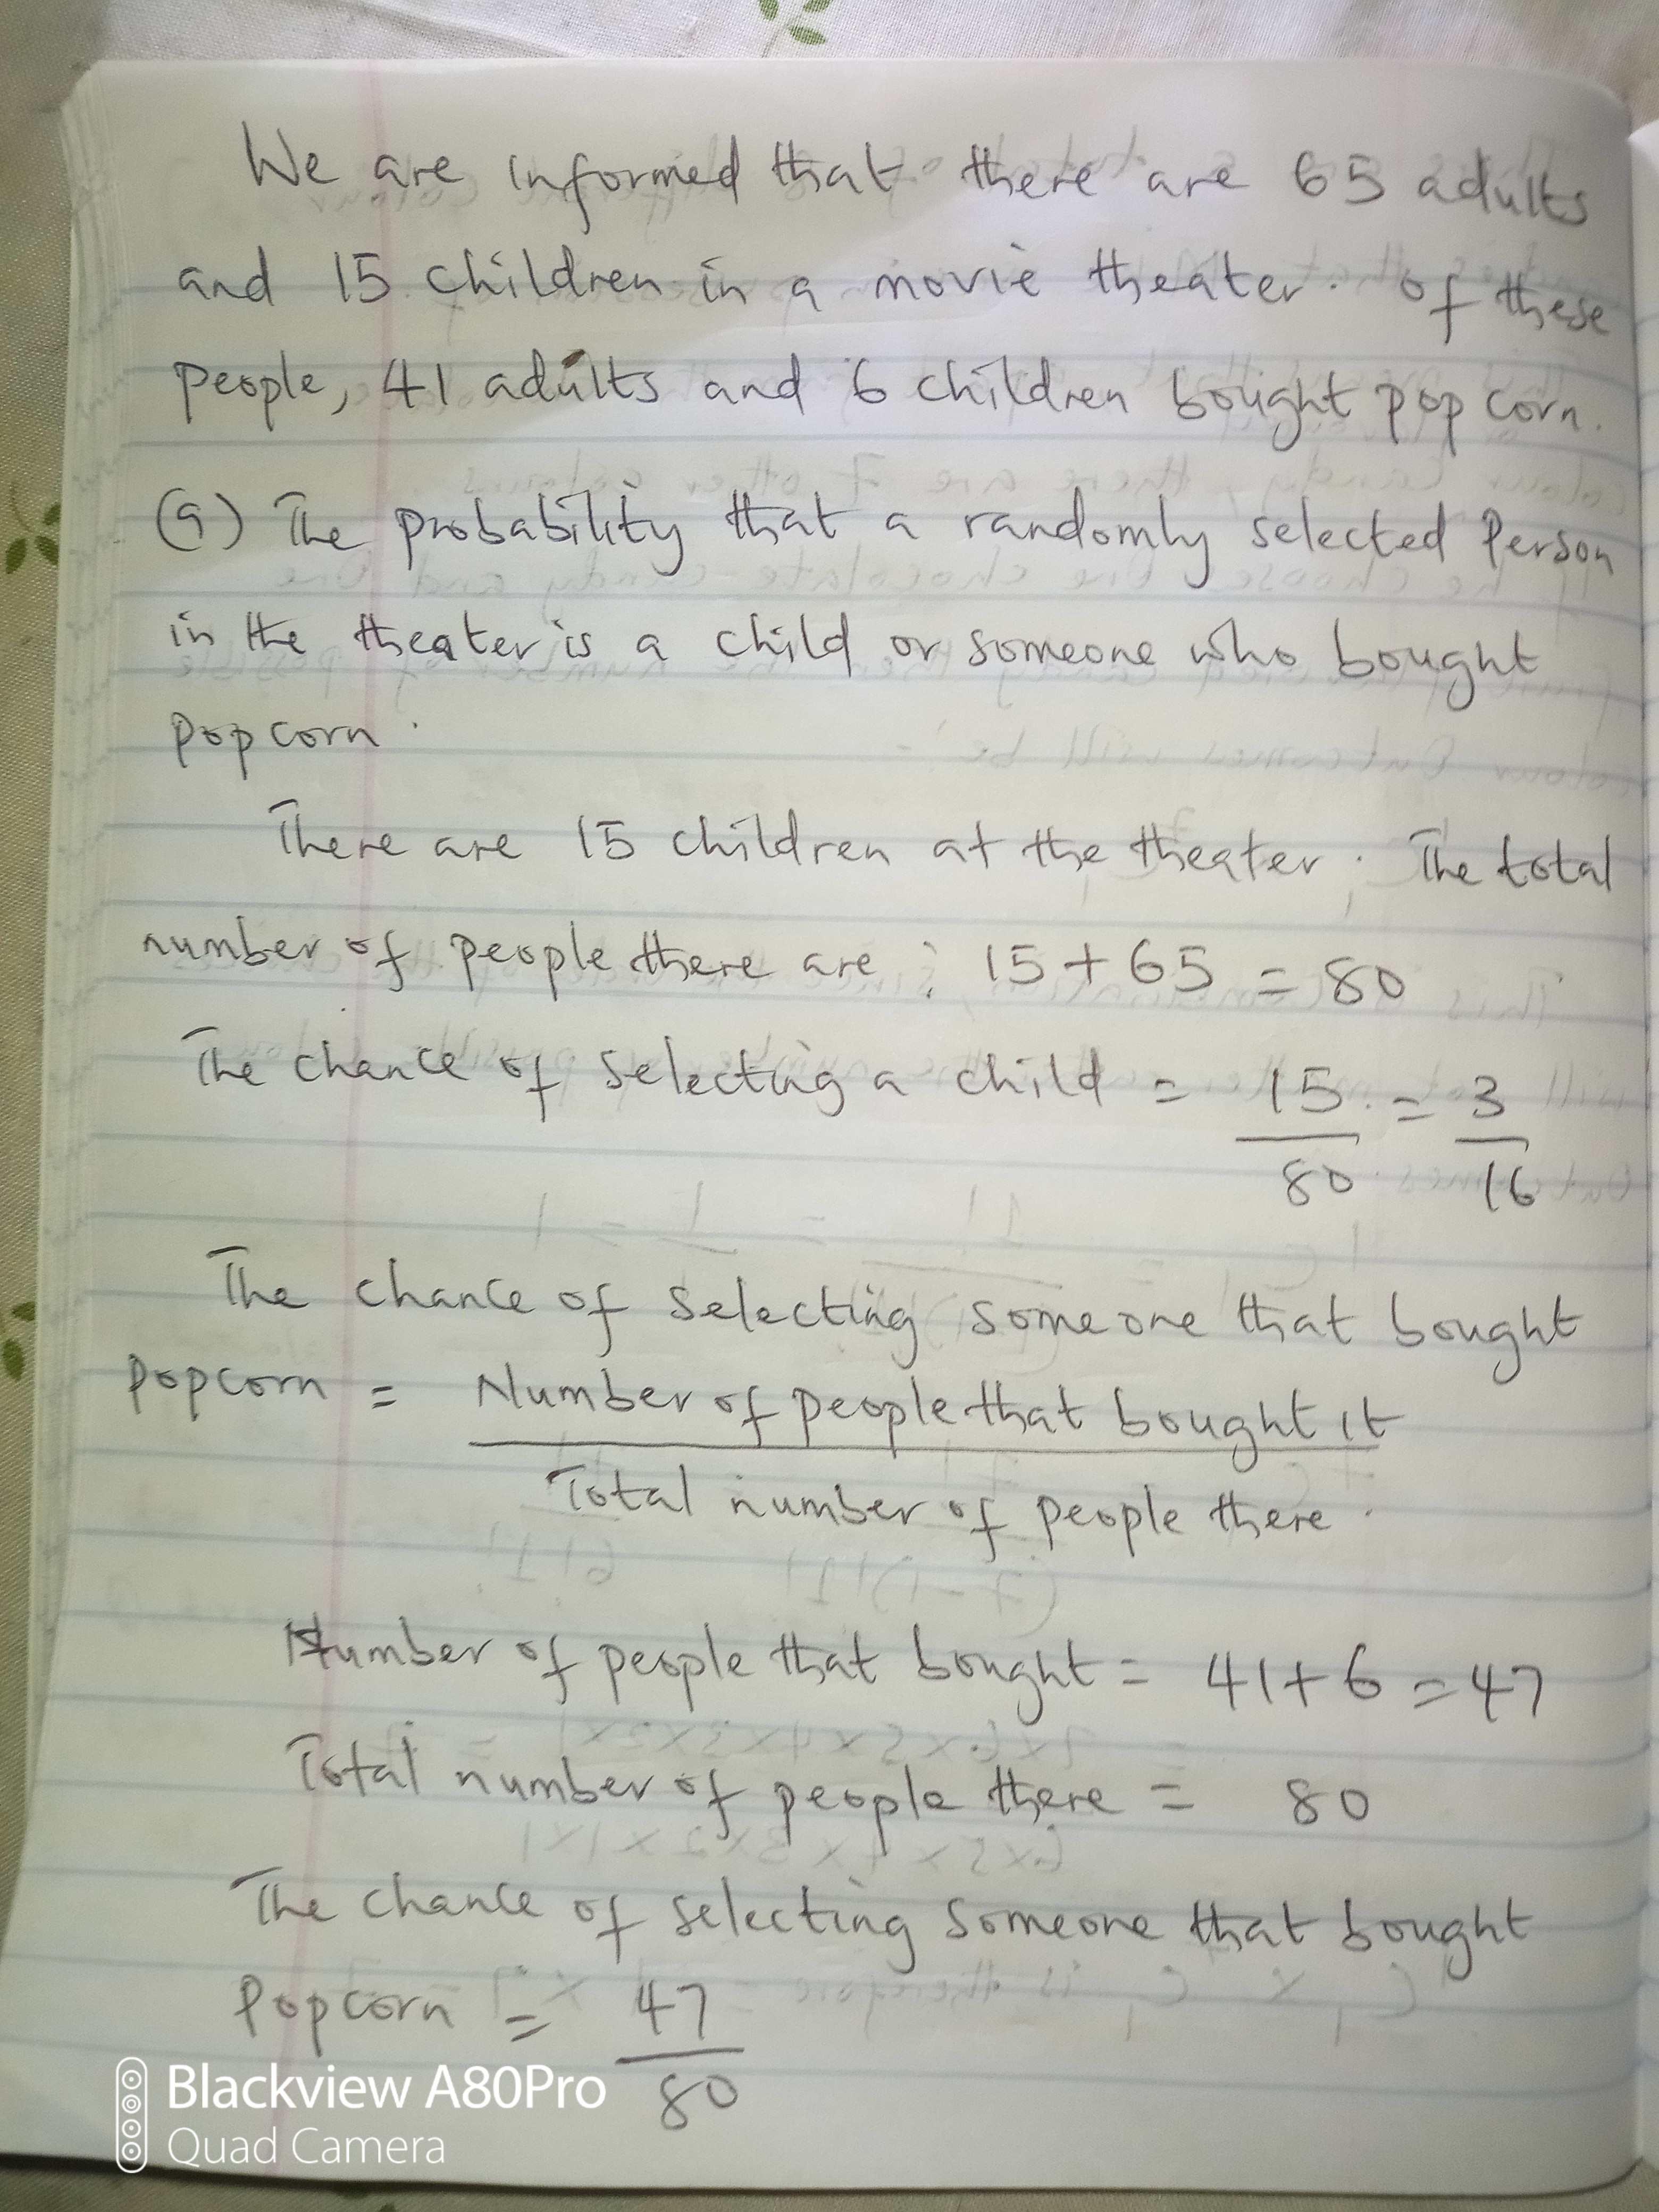 We are informed that there are 65 adults
and 15 children in a movie theater. Of these
people, 41 adults and 6 children bought pop corn.
(a) The probability that a randomly selected Person
in the theater is a child or someone who bought
popcorn.
There are 15 children at the theater. The total
number of people there are: 15 + 65 = 80
The chance of selecting a child = 15/80 = 3/16
The chance of selecting someone that bought
popcorn = Number of people that bought it
Total number of people there.
Number of people that bought = 41 + 6 = 47
Total number of people there = 80
The chance of selecting someone that bought
Popcorn = 47/80
Blackview A80Pro
Quad Camera